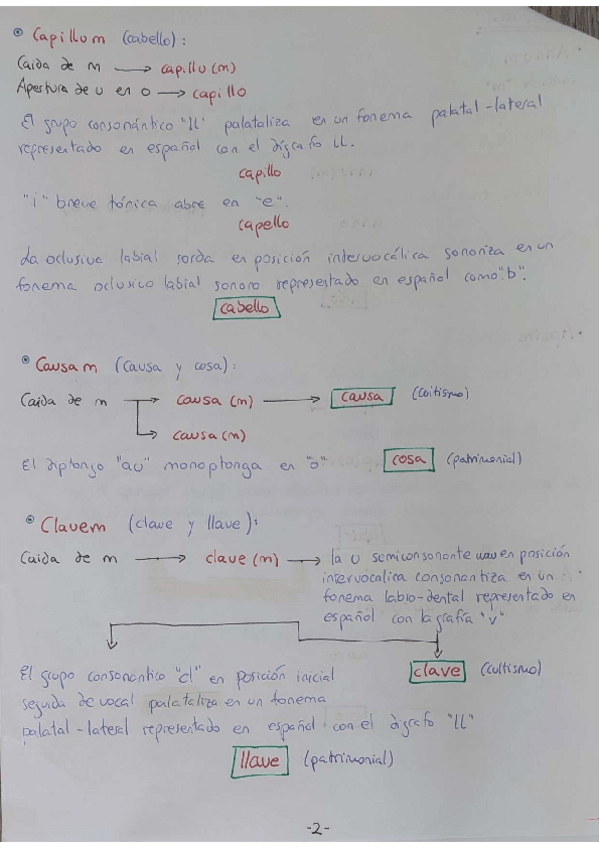 Capillum (cabello):
Caida de m → capillu(m)
Apertura de u en o → capillo
El grupo consonántico "ll" palataliza en un fonema palatal-lateral
representado en español con el dígrafo LL.
capillo
"i" breve tónica abre en "e".
capello
La oclusiva labial sorda en posición intervocálica sonoriza en un
fonema oclusivo labial sonoro representado en español como "b".
cabello
Causam (causa y cosa):
Caida de m → causa(m) → causa (cultismo)
→ causa(m)
El diptongo "au" monoptonga en "o" cosa (patrimonial)
Clavem (clave y llave):
Caida de m → clave(m) → la u semiconsonante en posición
intervocalica consonantiza en un
fonema labio-dental representado en
español con la grafía "v"
El grupo consonantico "cl" en posición inicial clave (cultismo)
seguida de vocal palataliza en un fonema
palatal-lateral representado en español con el dígrafo "LL"
llave (patrimonial)
-2-